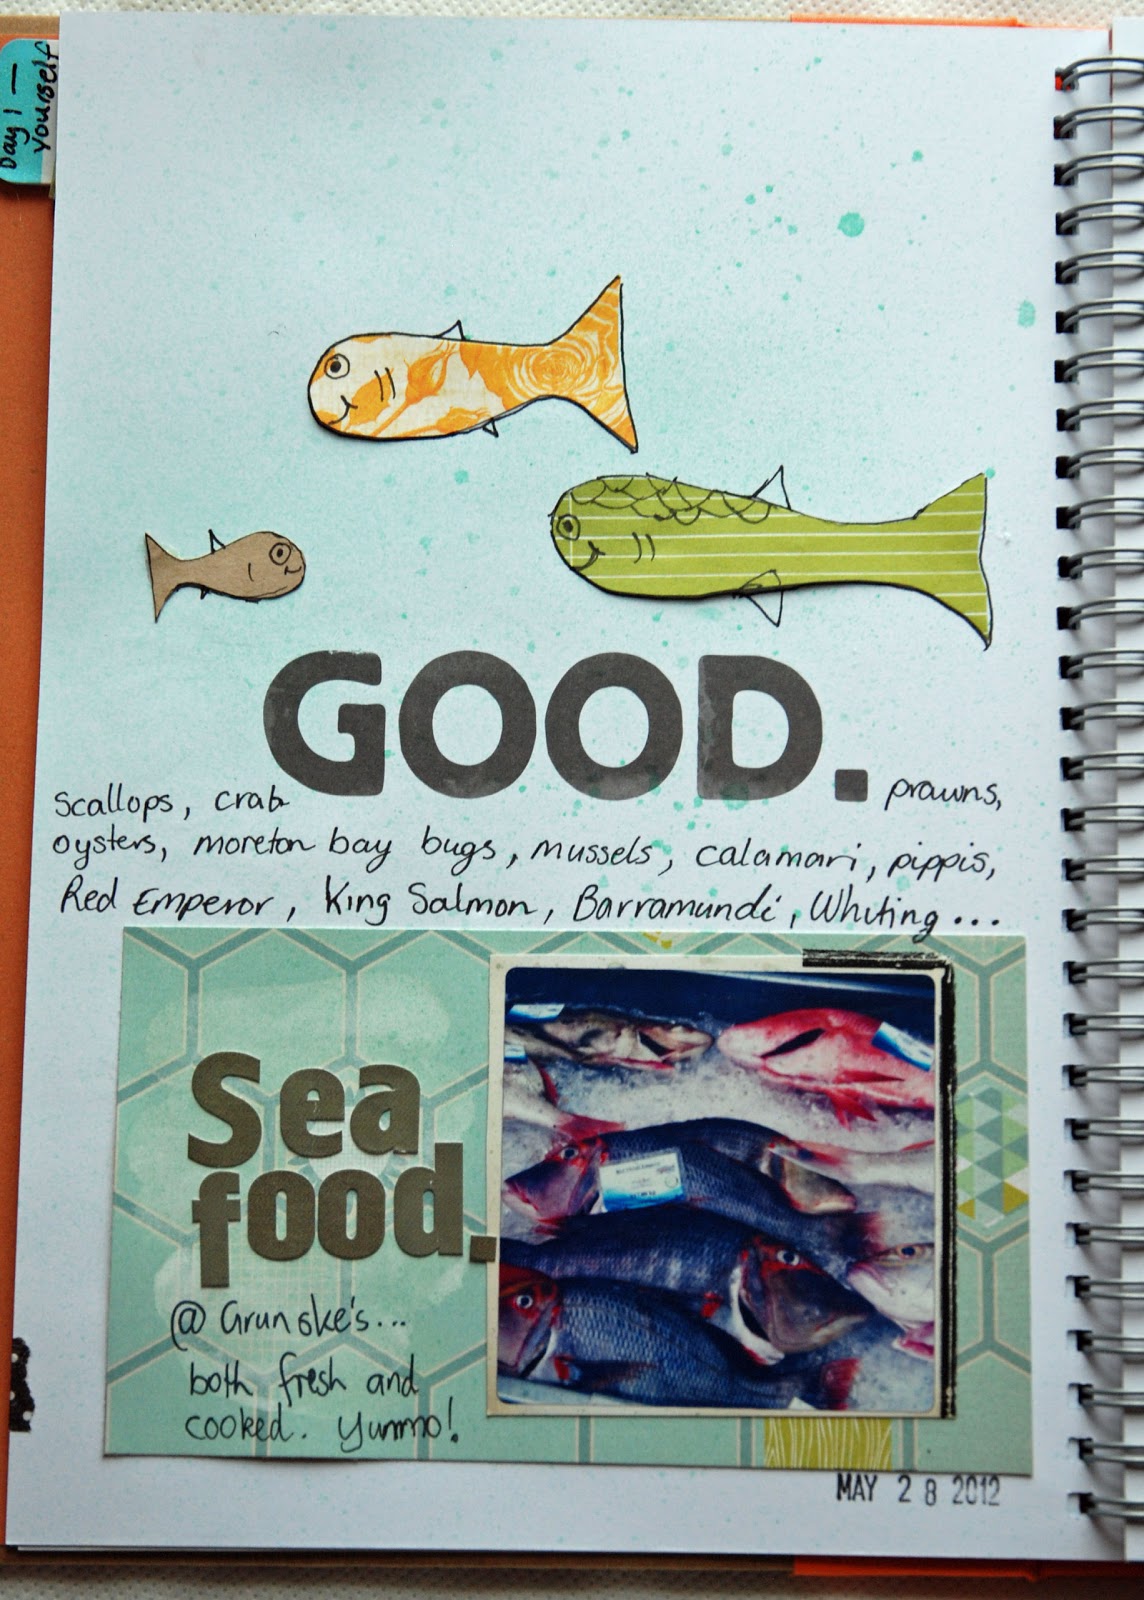 Day 1 —
yourself
GOOD.
Scallops, crab prawns,
oysters, moreton bay bugs, mussels, calamari, pippis,
Red Emperor, King Salmon, Barramundi, Whiting...
Sea
food.
@ Grunske's...
both fresh and
cooked. Yummo!
MAY 28 2012